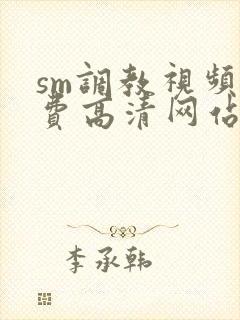 sm調教視頻
費高清网佔
李承韩